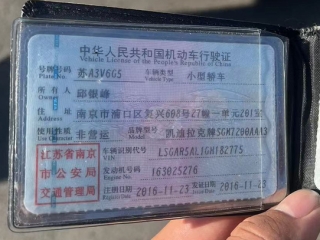 中华人民共和国机动车行驶证
Vehicle License of the People's Republic of China
号牌号码 苏A3V6G5 车辆类型 小型轿车
Plate No. Vehicle Type
所有人
Owner
住址 南京市浦口区复兴608号27幢一单元201室
Address
使用性质 非营运 品牌型号 凯迪拉克牌SGM7200AAA3
Use Character Model
江苏省南京 车辆识别代号 LSGAR5AL1GH182775
VIN
市公安局 发动机号码 163025276
Engine No.
交通管理局 注册日期 2016-11-23 发证日期 2016-11-23
Register Date Issue Date